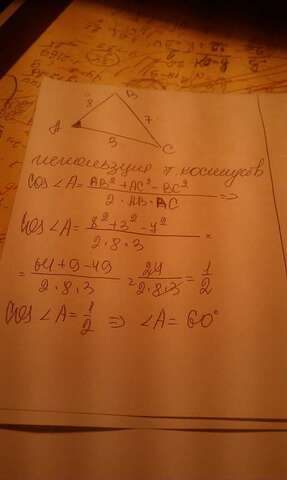 B
8
7
A
3
C
используя т. косинусов
Cos ∠A = AB² + AC² - BC² / 2 · AB · AC ⇒
Cos ∠A = 8² + 3² - 7² / 2 · 8 · 3 =
= 64 + 9 - 49 / 2 · 8 · 3 = 24 / 2 · 8 · 3 = 1 / 2
Cos ∠A = 1 / 2 ⇒ ∠A = 60°